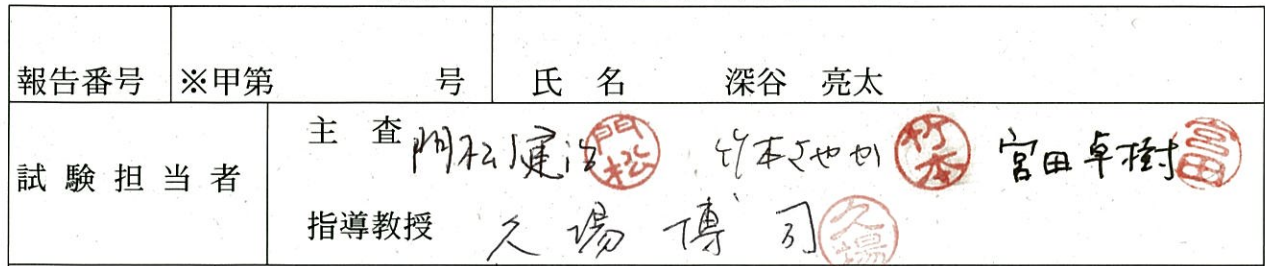 報告番号 ※甲第 号 氏 名 深谷 亮太
試験担当者
主 査 門松健治 門松 竹本さやか 竹本 宮田卓樹 宮田
指導教授 久場博司 久場